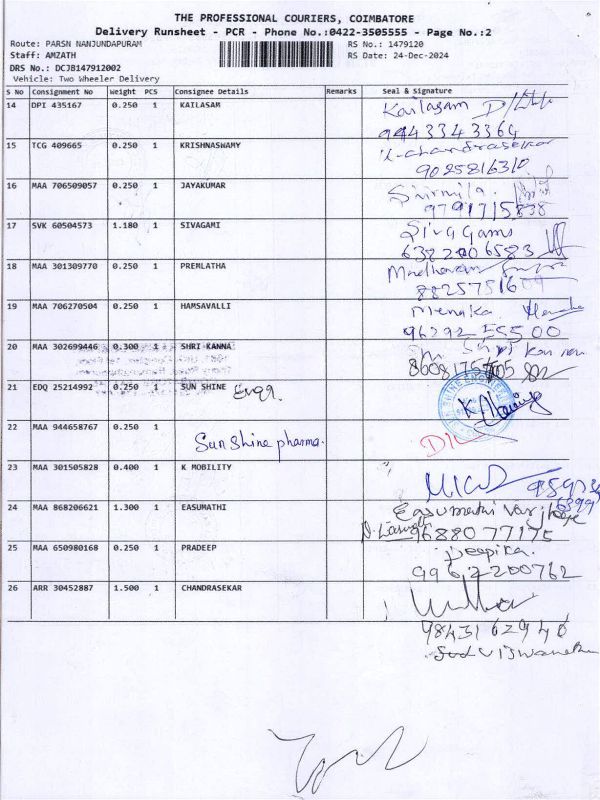 THE PROFESSIONAL COURIERS, COIMBATORE
Delivery Runsheet - PCR - Phone No.:0422-3505555 - Page No.:2
Route: PARSN NANJUNDAPURAM RS No.: 1479120
Staff: AMZATH RS Date: 24-Dec-2024
DRS No.: DCJB147912002
Vehicle: Two Wheeler Delivery
S No Consignment No Weight PCS Consignee Details Remarks Seal & Signature
14 DPI 435167 0.250 1 KAILASAM Kailasam
9443343364
15 TCG 409665 0.250 1 KRISHNASWAMY K-chandrasekar
9025816310
16 MAA 706509057 0.250 1 JAYAKUMAR
9791715838
17 SVK 60504573 1.180 1 SIVAGAMI Sivagami
6382006583
18 MAA 301309770 0.250 1 PREMLATHA Madhavan
8825751609
19 MAA 706270504 0.250 1 HAMSAVALLI Menaka
96292 55500
20 MAA 302699446 0.300 1 SHRI KANNA Shri Kanna
21 EDQ 25214992 0.250 1 SUN SHINE Engg.
22 MAA 944658767 0.250 1 Sun Shine pharma.
23 MAA 301505828 0.400 1 K MOBILITY
24 MAA 868206621 1.300 1 EASUMATHI Easumathi
9688077175
25 MAA 650980168 0.250 1 PRADEEP Deepika.
9962200762
26 ARR 30452887 1.500 1 CHANDRASEKAR
9843162940